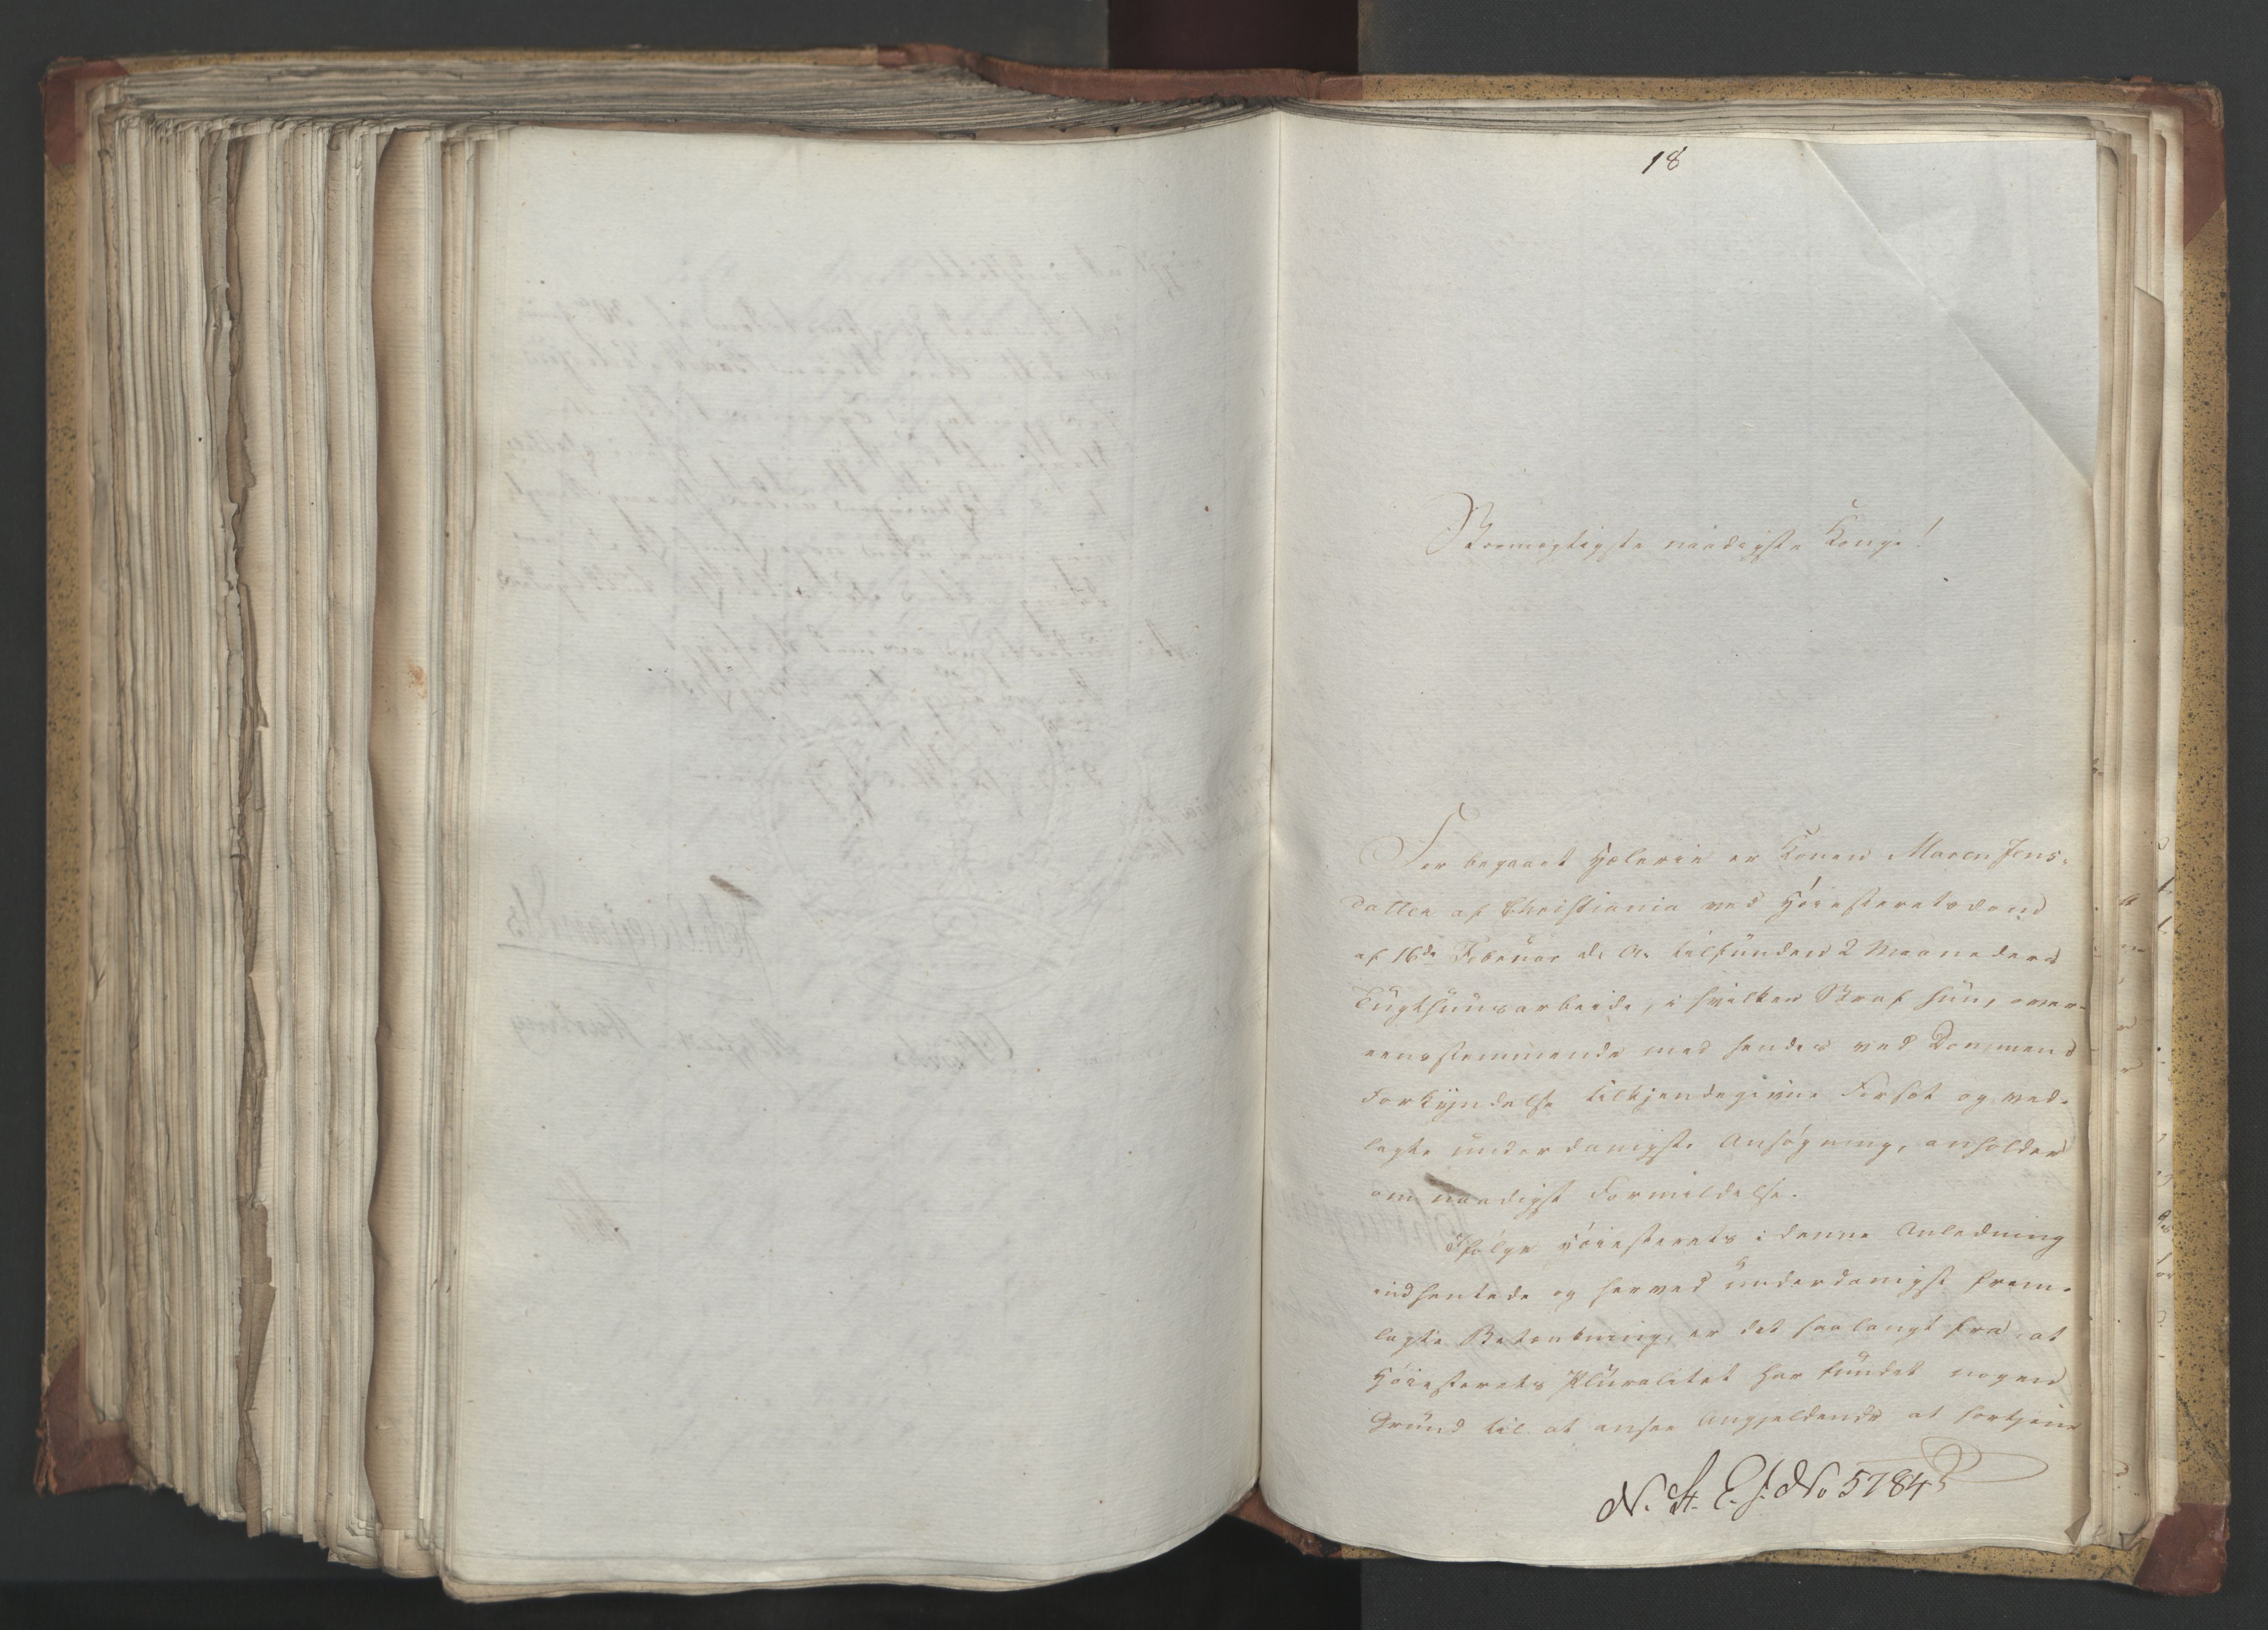 18
Stormægtigste naadigste Konge!
For begaaet Hæleri er Konen Maren Jens-
datter af Christiania ved Høiesteretsdom
af 16de Februar d. A. tilfunden 2 Maaneders
Tugthuusarbeide, i hvilken Straf hun, over-
eensstemmende med hendes ved Dommens
Forkyndelse tilkjendegivne Forsæt og ved-
lagte underdanigste Ansøgning, anholder
om naadigst Formildelse.
Ifølge Høiesterets i denne Anledning
indhentede og herved underdanigst frem-
lagte Betænkning, er det saa langt fra, at
Høiesterets Pluralitet har fundet nogen
Grund til at ansee Angjeldende at fortjene
N. St. E. J. No 5784